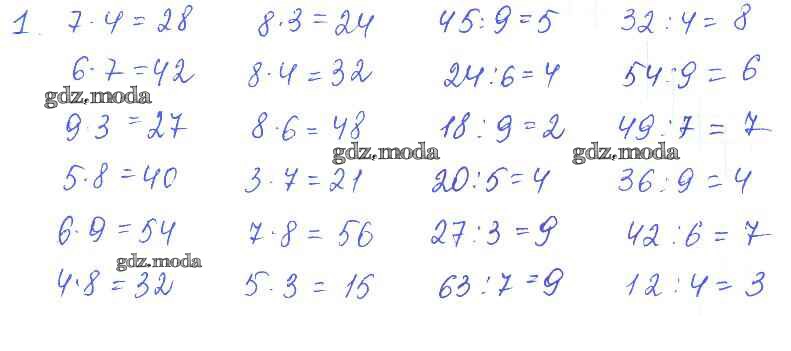 1. 7·4=28 8·3=24 45:9=5 32:4=8
6·7=42 8·4=32 24:6=4 54:9=6
gdz.moda
9·3=27 8·6=48 18:9=2 49:7=7
gdz.moda gdz.moda
5·8=40 3·7=21 20:5=4 36:9=4
6·9=54 7·8=56 27:3=9 42:6=7
gdz.moda
4·8=32 5·3=15 63:7=9 12:4=3